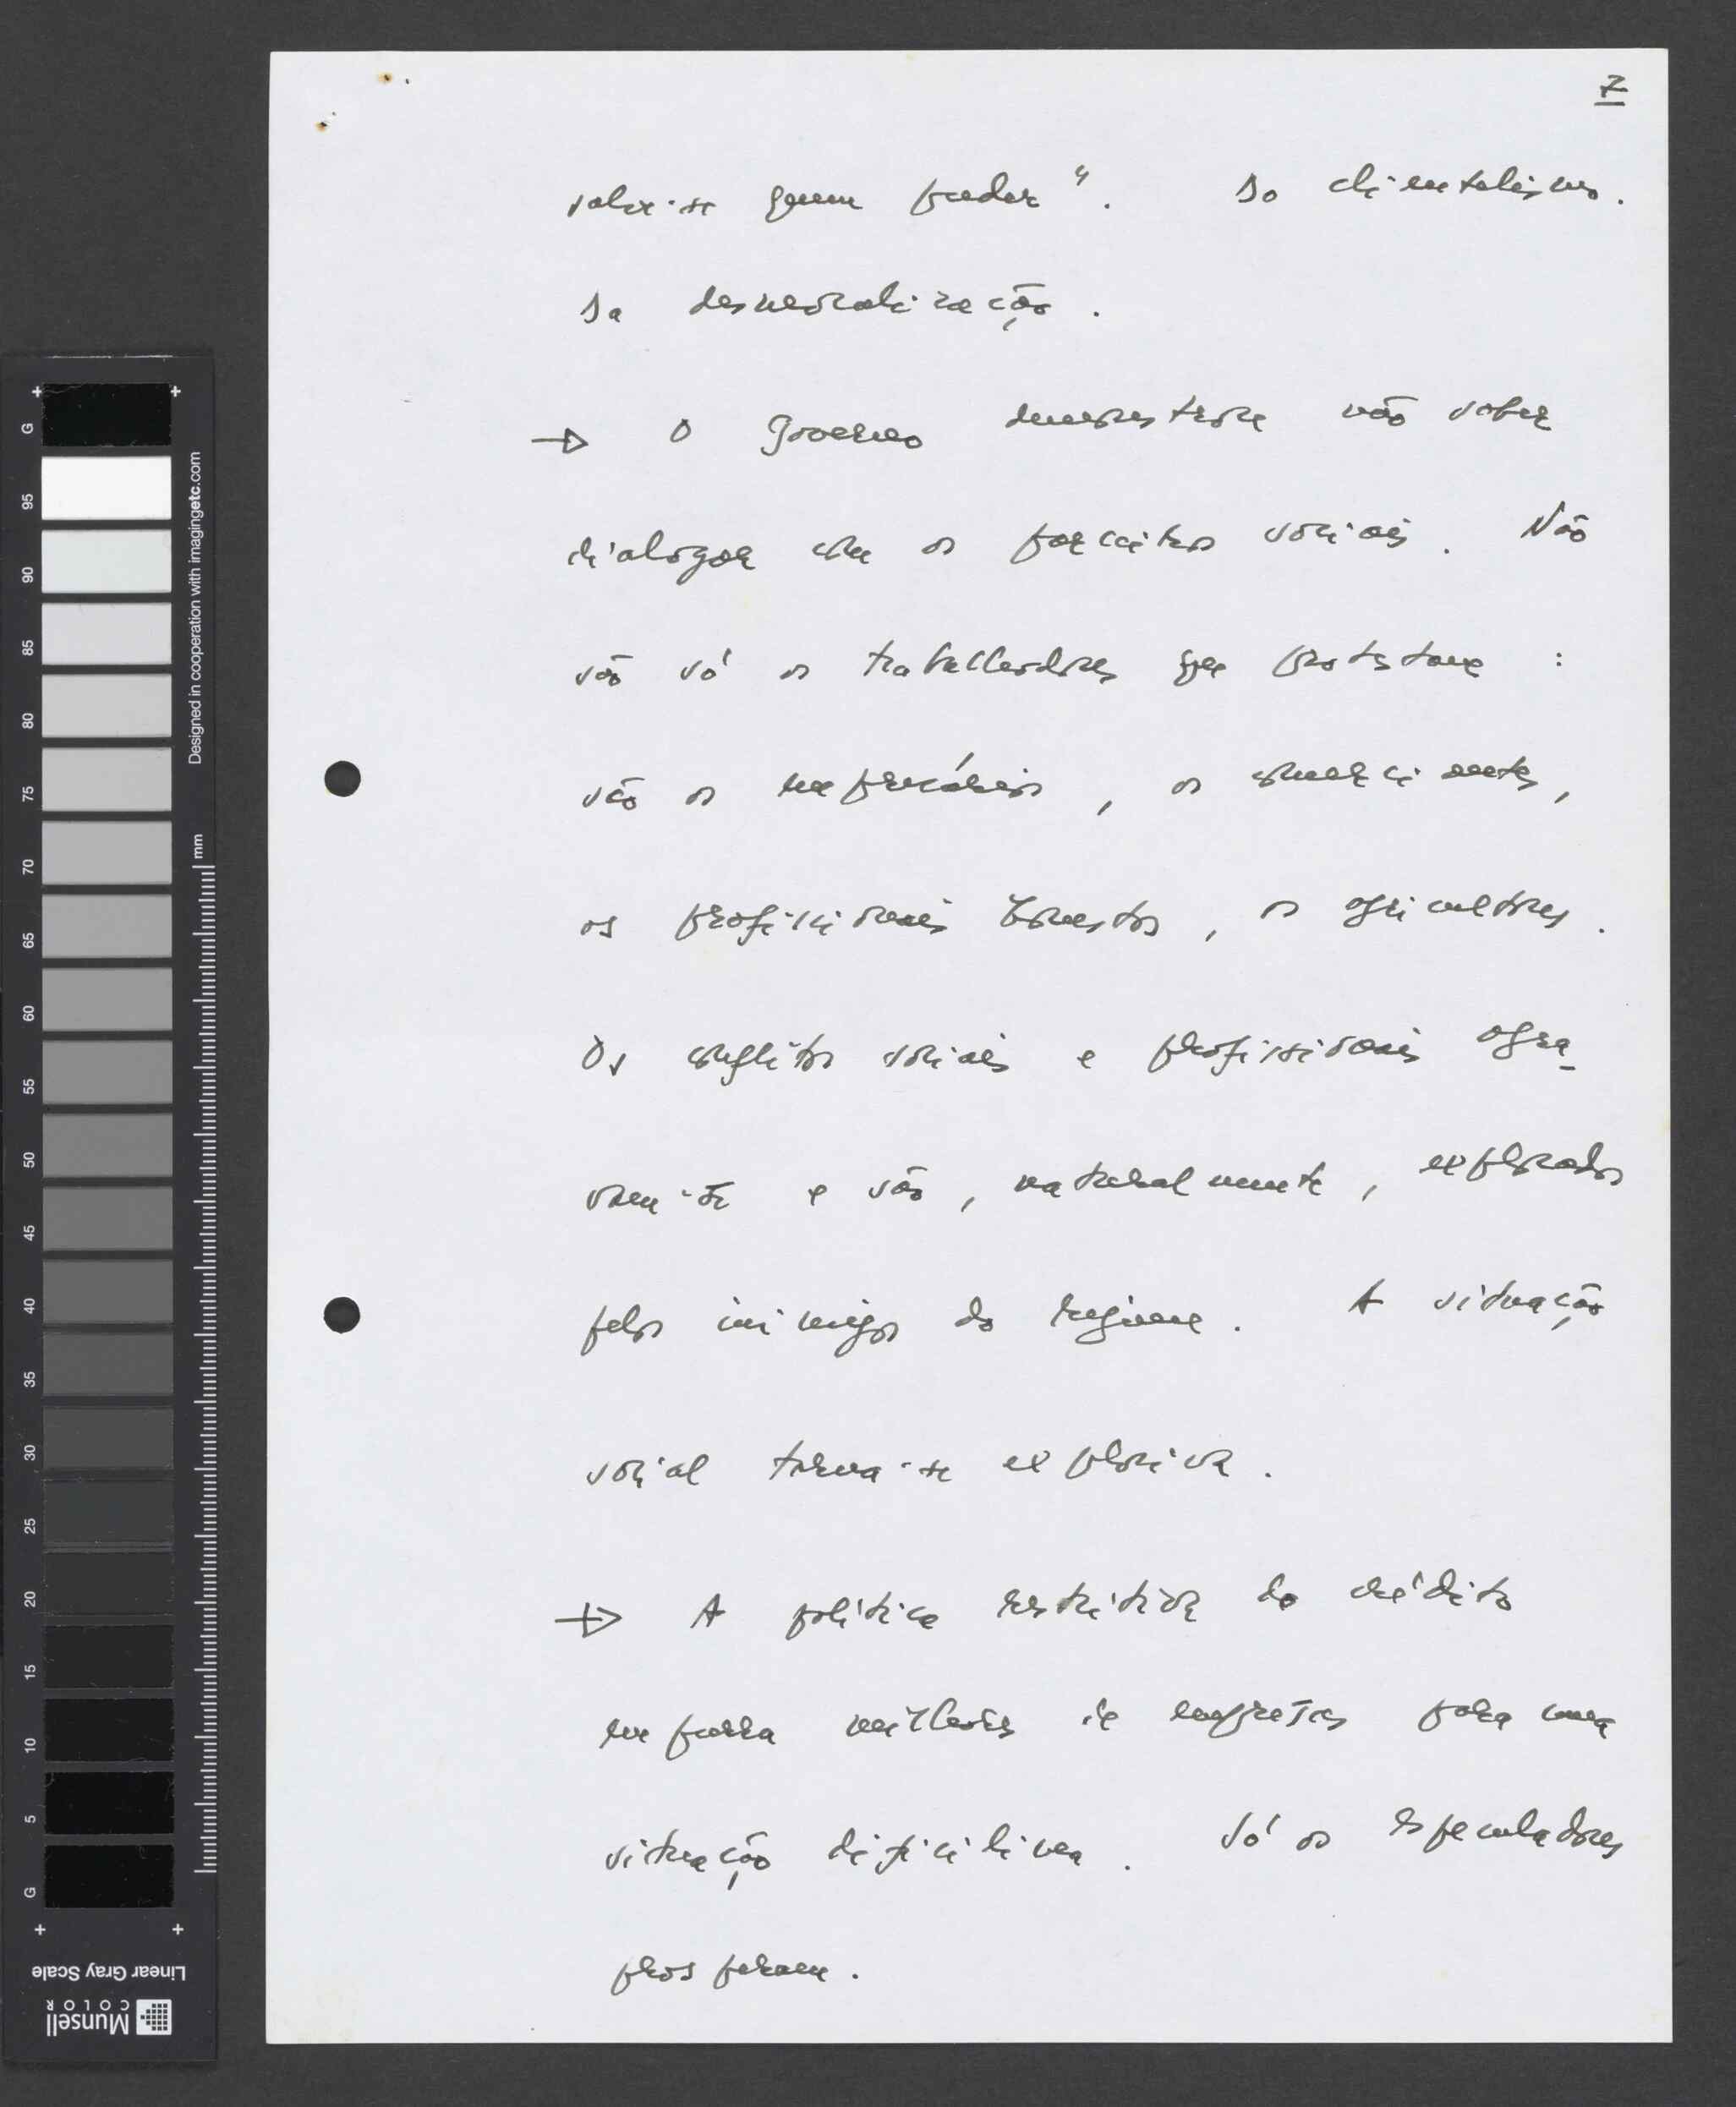 7
salve-se quem puder". Do clientelismo.
Da desmoralização.
→ O Governo demonstra não saber
dialogar com os parceiros sociais. Não
são só os trabalhadores que protestam :
são os empresários, os comerciantes,
os profissionais honestos, os agricultores.
Os conflitos sociais e profissionais agra-
vam-se e são, naturalmente, explorados
pelos inimigos do regime. A situação
social torna-se explosiva.
→ A política restritiva do crédito
empurra milhares de empresas para uma
situação dificílima. Só os especuladores
prosperam.
G
95
90
85
80
75
70
65
60
55
50
45
40
35
30
25
20
15
10
5
G
mm
Designed in cooperation with imagingetc.com
Linear Gray Scale
Munsell
COLOR